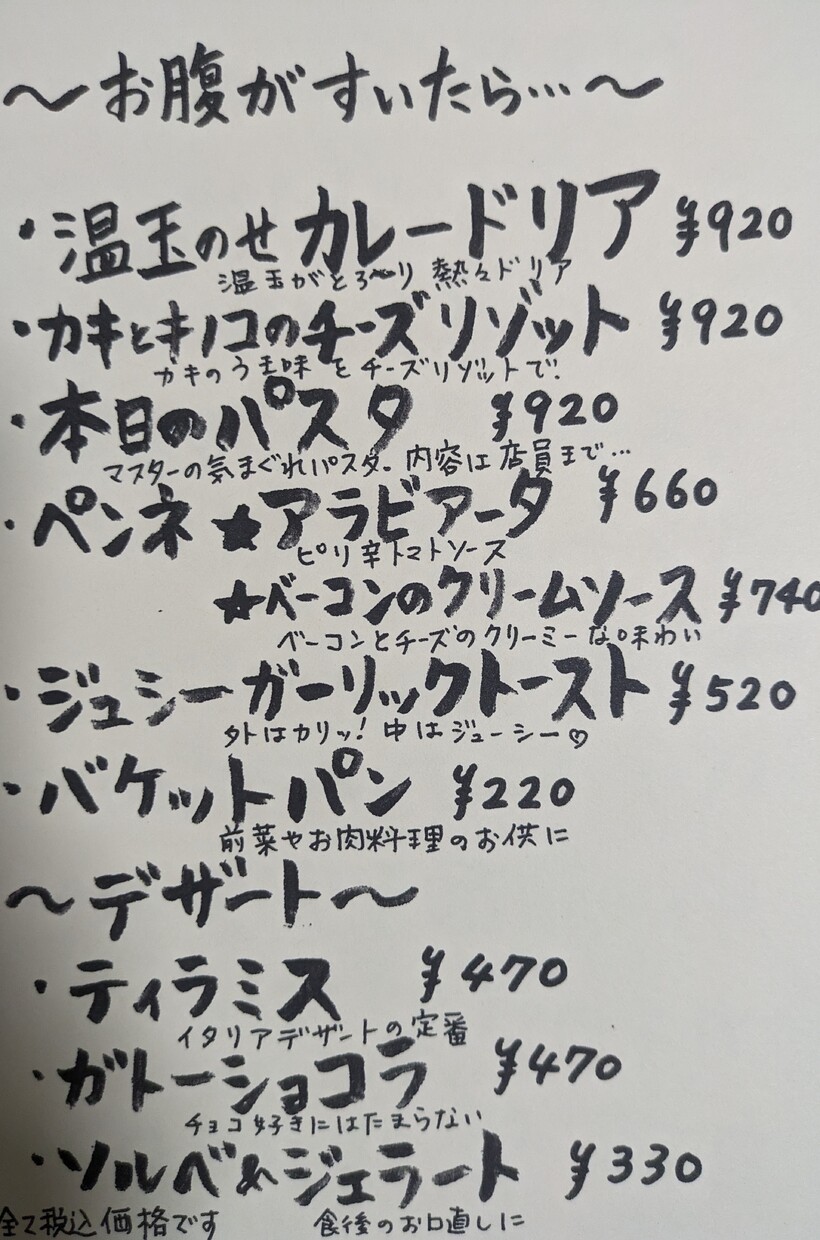 ～お腹がすいたら…～
・温玉のせカレードリア ¥920
温玉がとろ～り 熱々ドリア
・カキとキノコのチーズリゾット ¥920
カキのうま味をチーズリゾットで!
・本日のパスタ ¥920
マスターの気まぐれパスタ。内容は店員まで…
・ペンネ ★アラビアータ ¥660
ピリ辛トマトソース
★ベーコンのクリームソース ¥740
ベーコンとチーズのクリーミーな味わい
・ジュシーガーリックトースト ¥520
外はカリッ! 中はジューシー♡
・バケットパン ¥220
前菜やお肉料理のお供に
～デザート～
・ティラミス ¥470
イタリアデザートの定番
・ガトーショコラ ¥470
チョコ好きにはたまらない
・ソルベorジェラート ¥330
全て税込価格です 食後のお口直しに